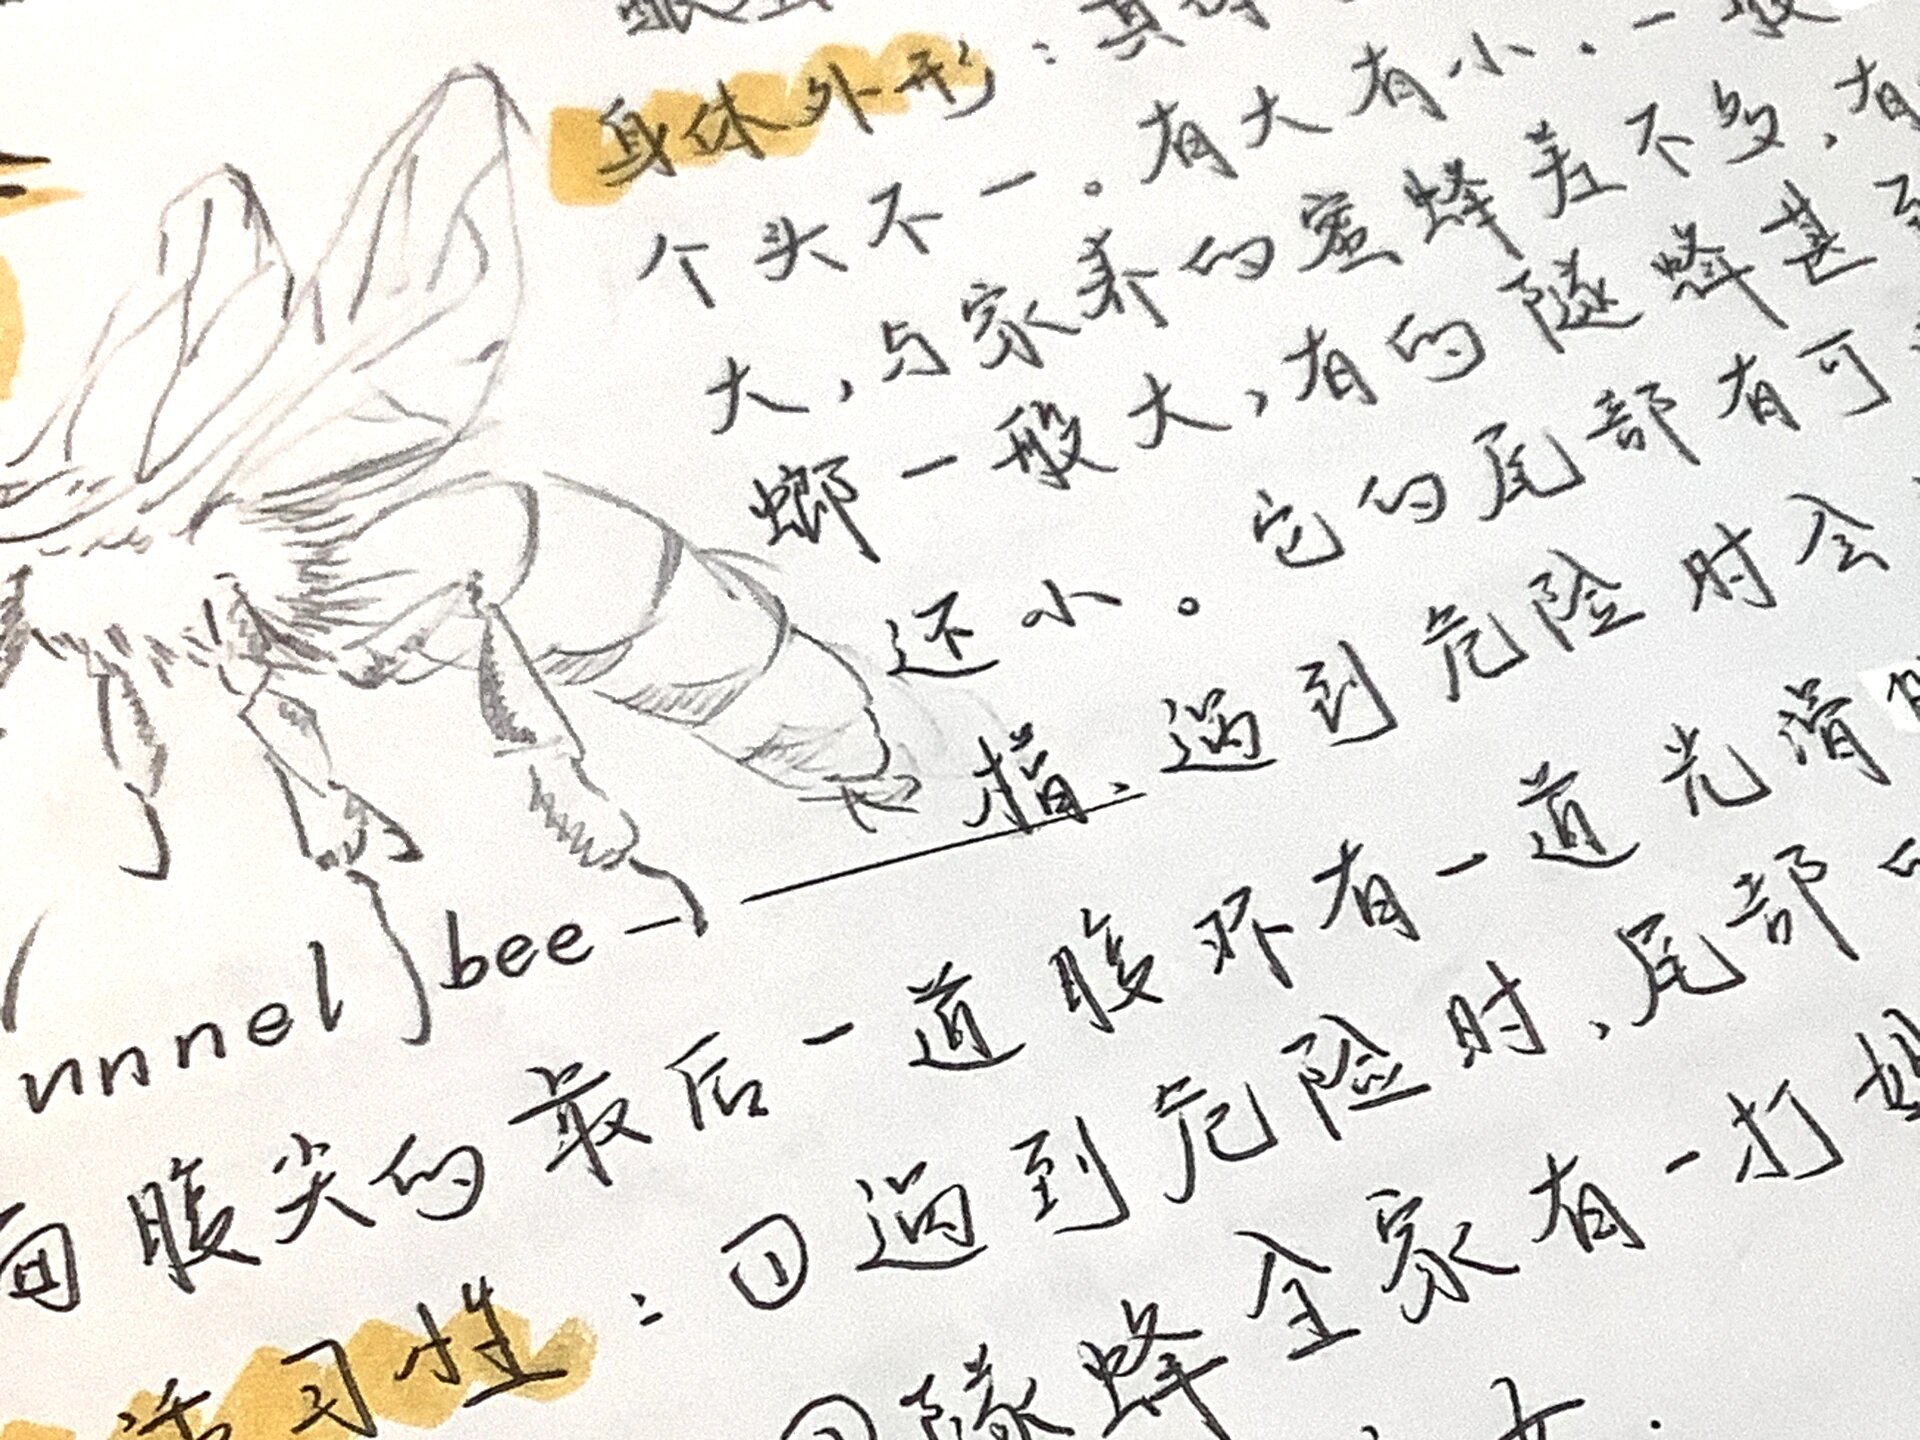 身体外形：其
个头不一。有大有小.一般
大，与家养的蜜蜂差不多，有
螂一般大，有的隧蜂甚至
还小。它的尾部有可
指，遇到危险时会
unnel bee —
面腹尖的最后一道腹环有一道光滑
活习性：①遇到危险时、尾部
②隧蜂全家有一打